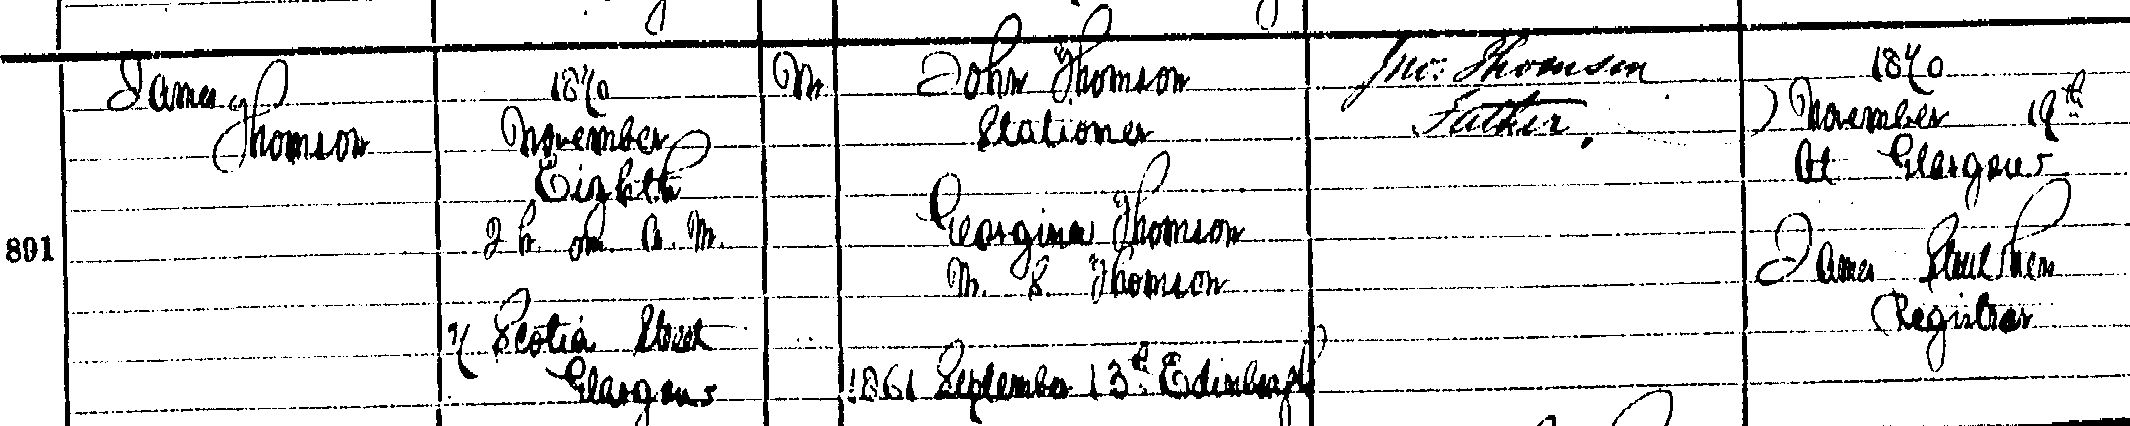 891
James
Thomson
1870
November
Eighth
2 h. om. A. M.
7 Scotia Street
Glasgow
M
John Thomson
Stationer
Georgina Thomson
M. S. Thomson
1861 September 13th Edinburgh
Jno. Thomson
Father.
1870
November 19th
At Glasgow
James
Registrar